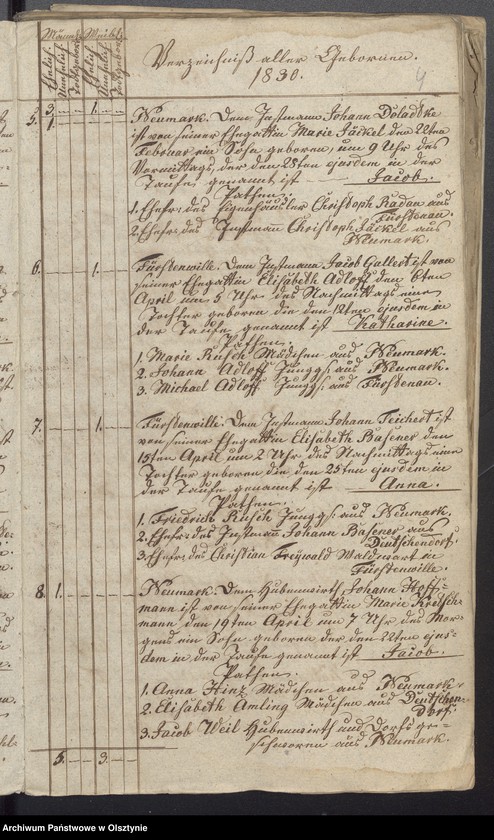 Männl. Weibl.
Ehelich Unehelich Todtgeboren Ehelich Unehelich Todtgeboren
Verzeichniß aller Gebornen.
1830.
4
3. — — 1. — —
5. 1. Neumark. Dem Instmann Johann Doladtke
ist von seiner Ehegattin Marie Jäckel den 22ten
Februar ein Sohn geboren, um 9 Uhr des
Vormittags, der den 28ten ejusdem in der
Taufe genannt ist — Jacob.
Pathen.
1. Ehefr: des Eigenhäusler Christoph Radau aus
Fürstenau.
2. Ehefr: des Instmann Christoph Jäckel aus
Neumark.
6. — — 1. — — Fürstenwille. Dem Instmann Jacob Gallert ist von
seiner Ehegattin Elisabeth Adloff den 6ten
April um 5 Uhr des Nachmittags eine
Tochter geboren die den 12ten ejusdem in
der Taufe genannt ist Katharine.
Pathen.
1. Marie Kusch Mädchen aus Neumark.
2. Johann Adloff Junggs: aus Neumark.
3. Michael Adloff Junggs: aus Fürstenau.
7. — — 1. — — Fürstenwille. Dem Instmann Johann Teichert ist
von seiner Ehegattin Elisabeth Basener den
15ten April um 2 Uhr des Nachmittags eine
Tochter geboren die den 25ten ejusdem in
der Taufe genannt ist — Anna.
Pathen.
1. Friedrich Kusch Junggs: aus Neumark.
2. Ehefr: des Instmann Johann Basener aus
Deutschendorf.
3. Ehefr: des Christian Freywald Waldwart in
Fürstenwille.
8. 1. — — — — Neumark. Dem Hubenwirth Johann Hoff-
mann ist von seiner Ehegattin Marie Kretsch-
mann den 19ten April um 7 Uhr des Mor-
gens ein Sohn geboren der den 22ten ejus-
dem in der Taufe genannt ist — Jacob.
Pathen.
1. Anna Hinz Mädchen aus Neumark.
2. Elisabeth Amling Mädchen aus Deutschen-
dorf.
3. Jacob Weil Hubenwirth und Dorfsge-
schworen aus Neumark.
5. — — 3. — —
Archiwum Państwowe w Olsztynie